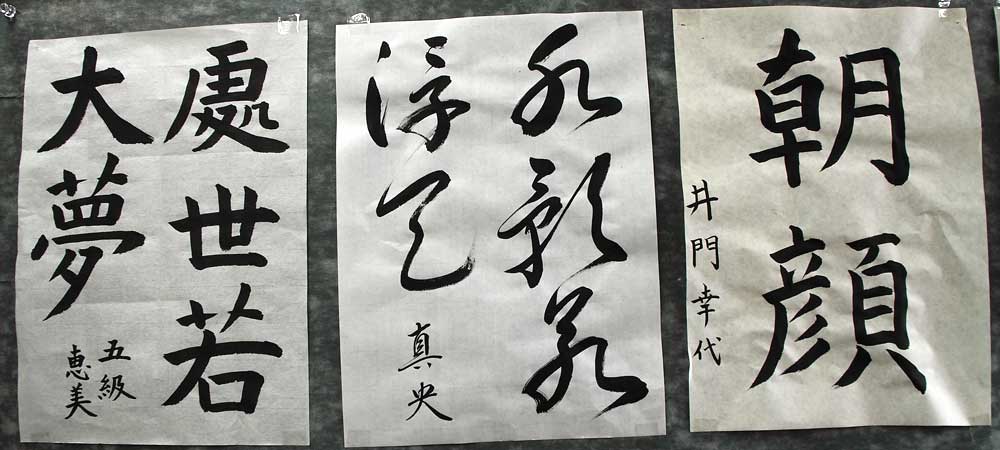 處世若
大夢
五級
恵美
水影若
浮天
真央
朝顔
井門幸代